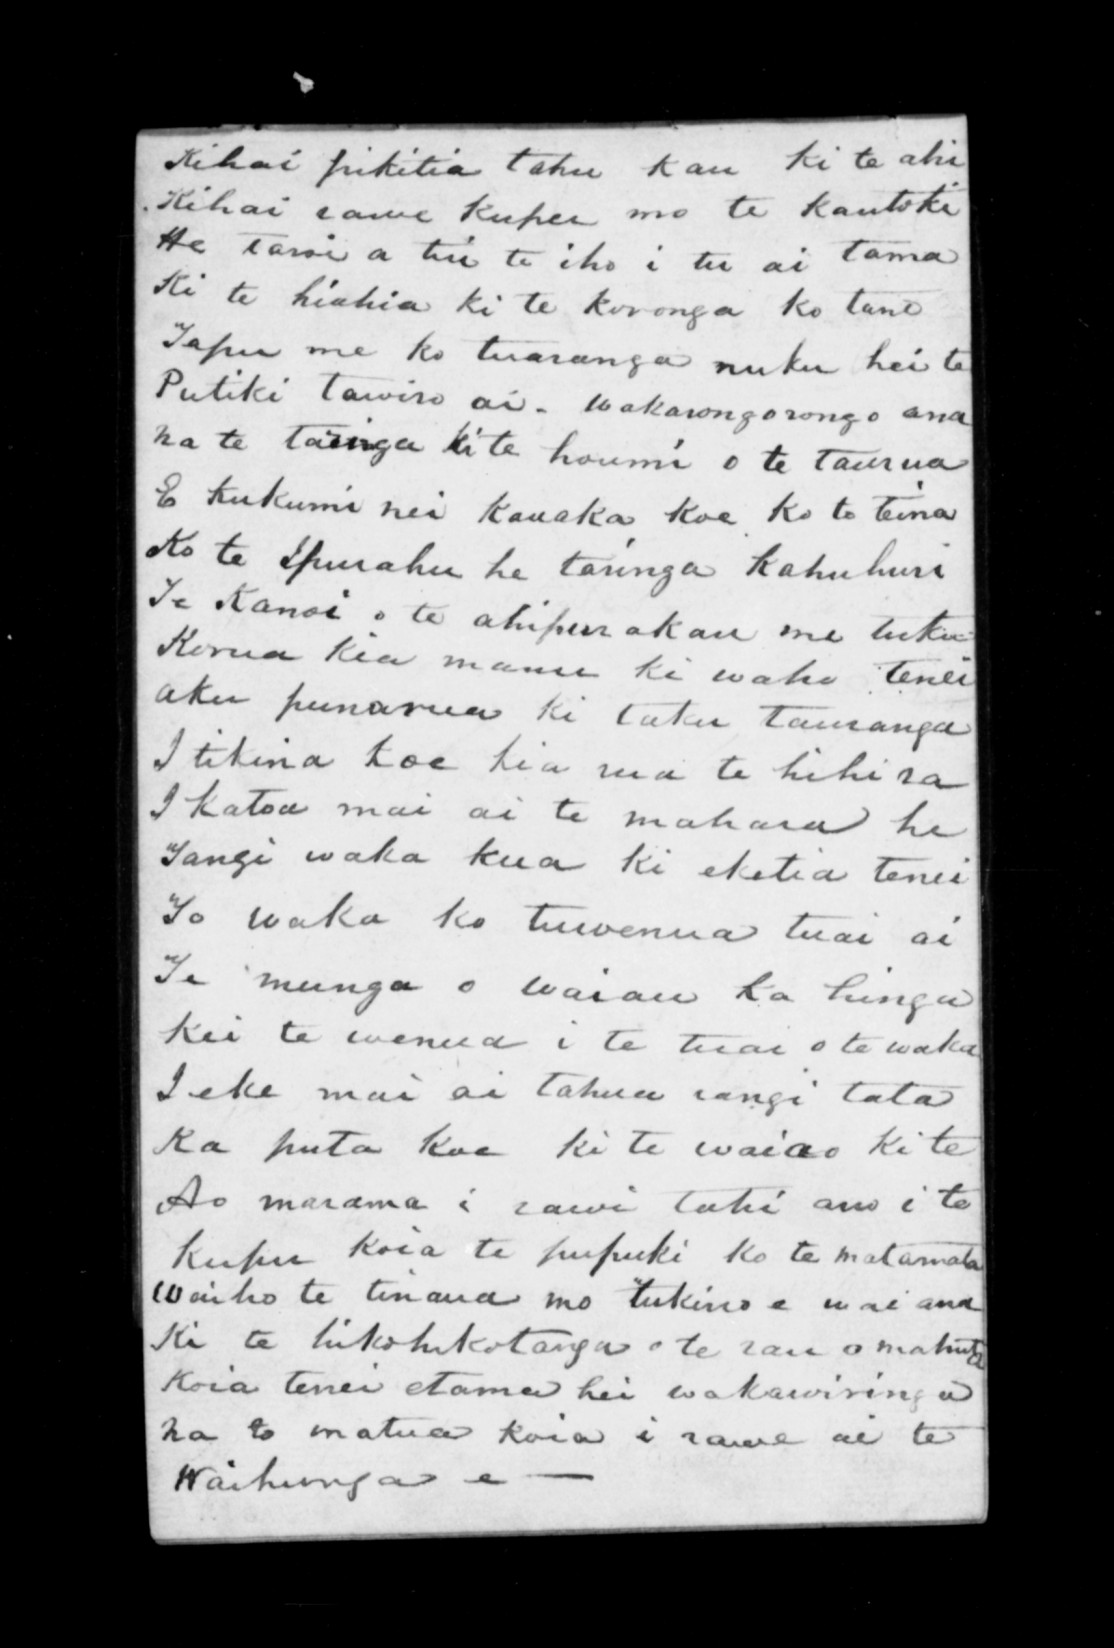 Kihai pikitia tahu kau ki te ahi
Kihai rawe kupu mo te kautoki
He taroi a tiu te iho i tu ai tama
Ki te hiahia ki te koronga ko tane
Tapu me ko tuaranga nuku hei te
Putiki tawiro ai. Wakarongorongo ana
na te taringa ki te houmi o te taurua
E kukumi nei kauaka koe ko to teina
Ko te Ipurahu he taringa kahuhuri
Te Kanoi o te ahipurakau me tuku
Korua kia manu ki waho tenei
aku punarua ki taku tauranga
I tikina koe kia rua te hihi ra
I katoa mai ai te mahara he
Tangi waka kua ki eketia tenei
To waka ko tuwenua tuai ai
Te munga o waiau ka hinga
kei te wenua i te tuai o te waka
I eke mai ai tahua rangi tata
Ka puta koe ki te waiao ki te
Ao marama i rawi tahi ano i te
kupu koia te pupuki ko te matamata
Waiho te tinana mo tukino e wai ana
Ki te hikohikotanga o te rau o mahuta
Koia tenei etama hei wakawiringa
na to matua koia i rawe ai te
Waihunga e —